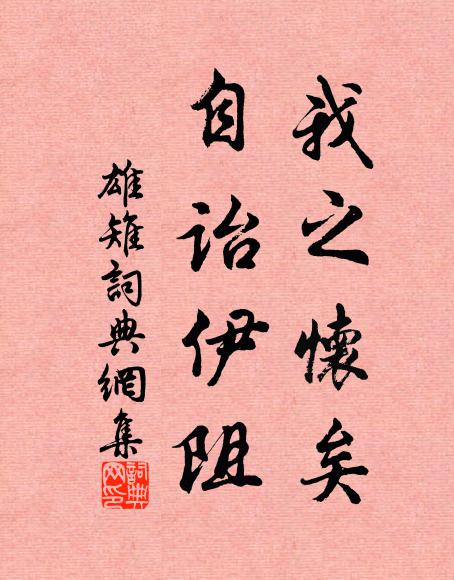 我之懷矣
自詒伊阻
雄雉詞典網集
詞典网印